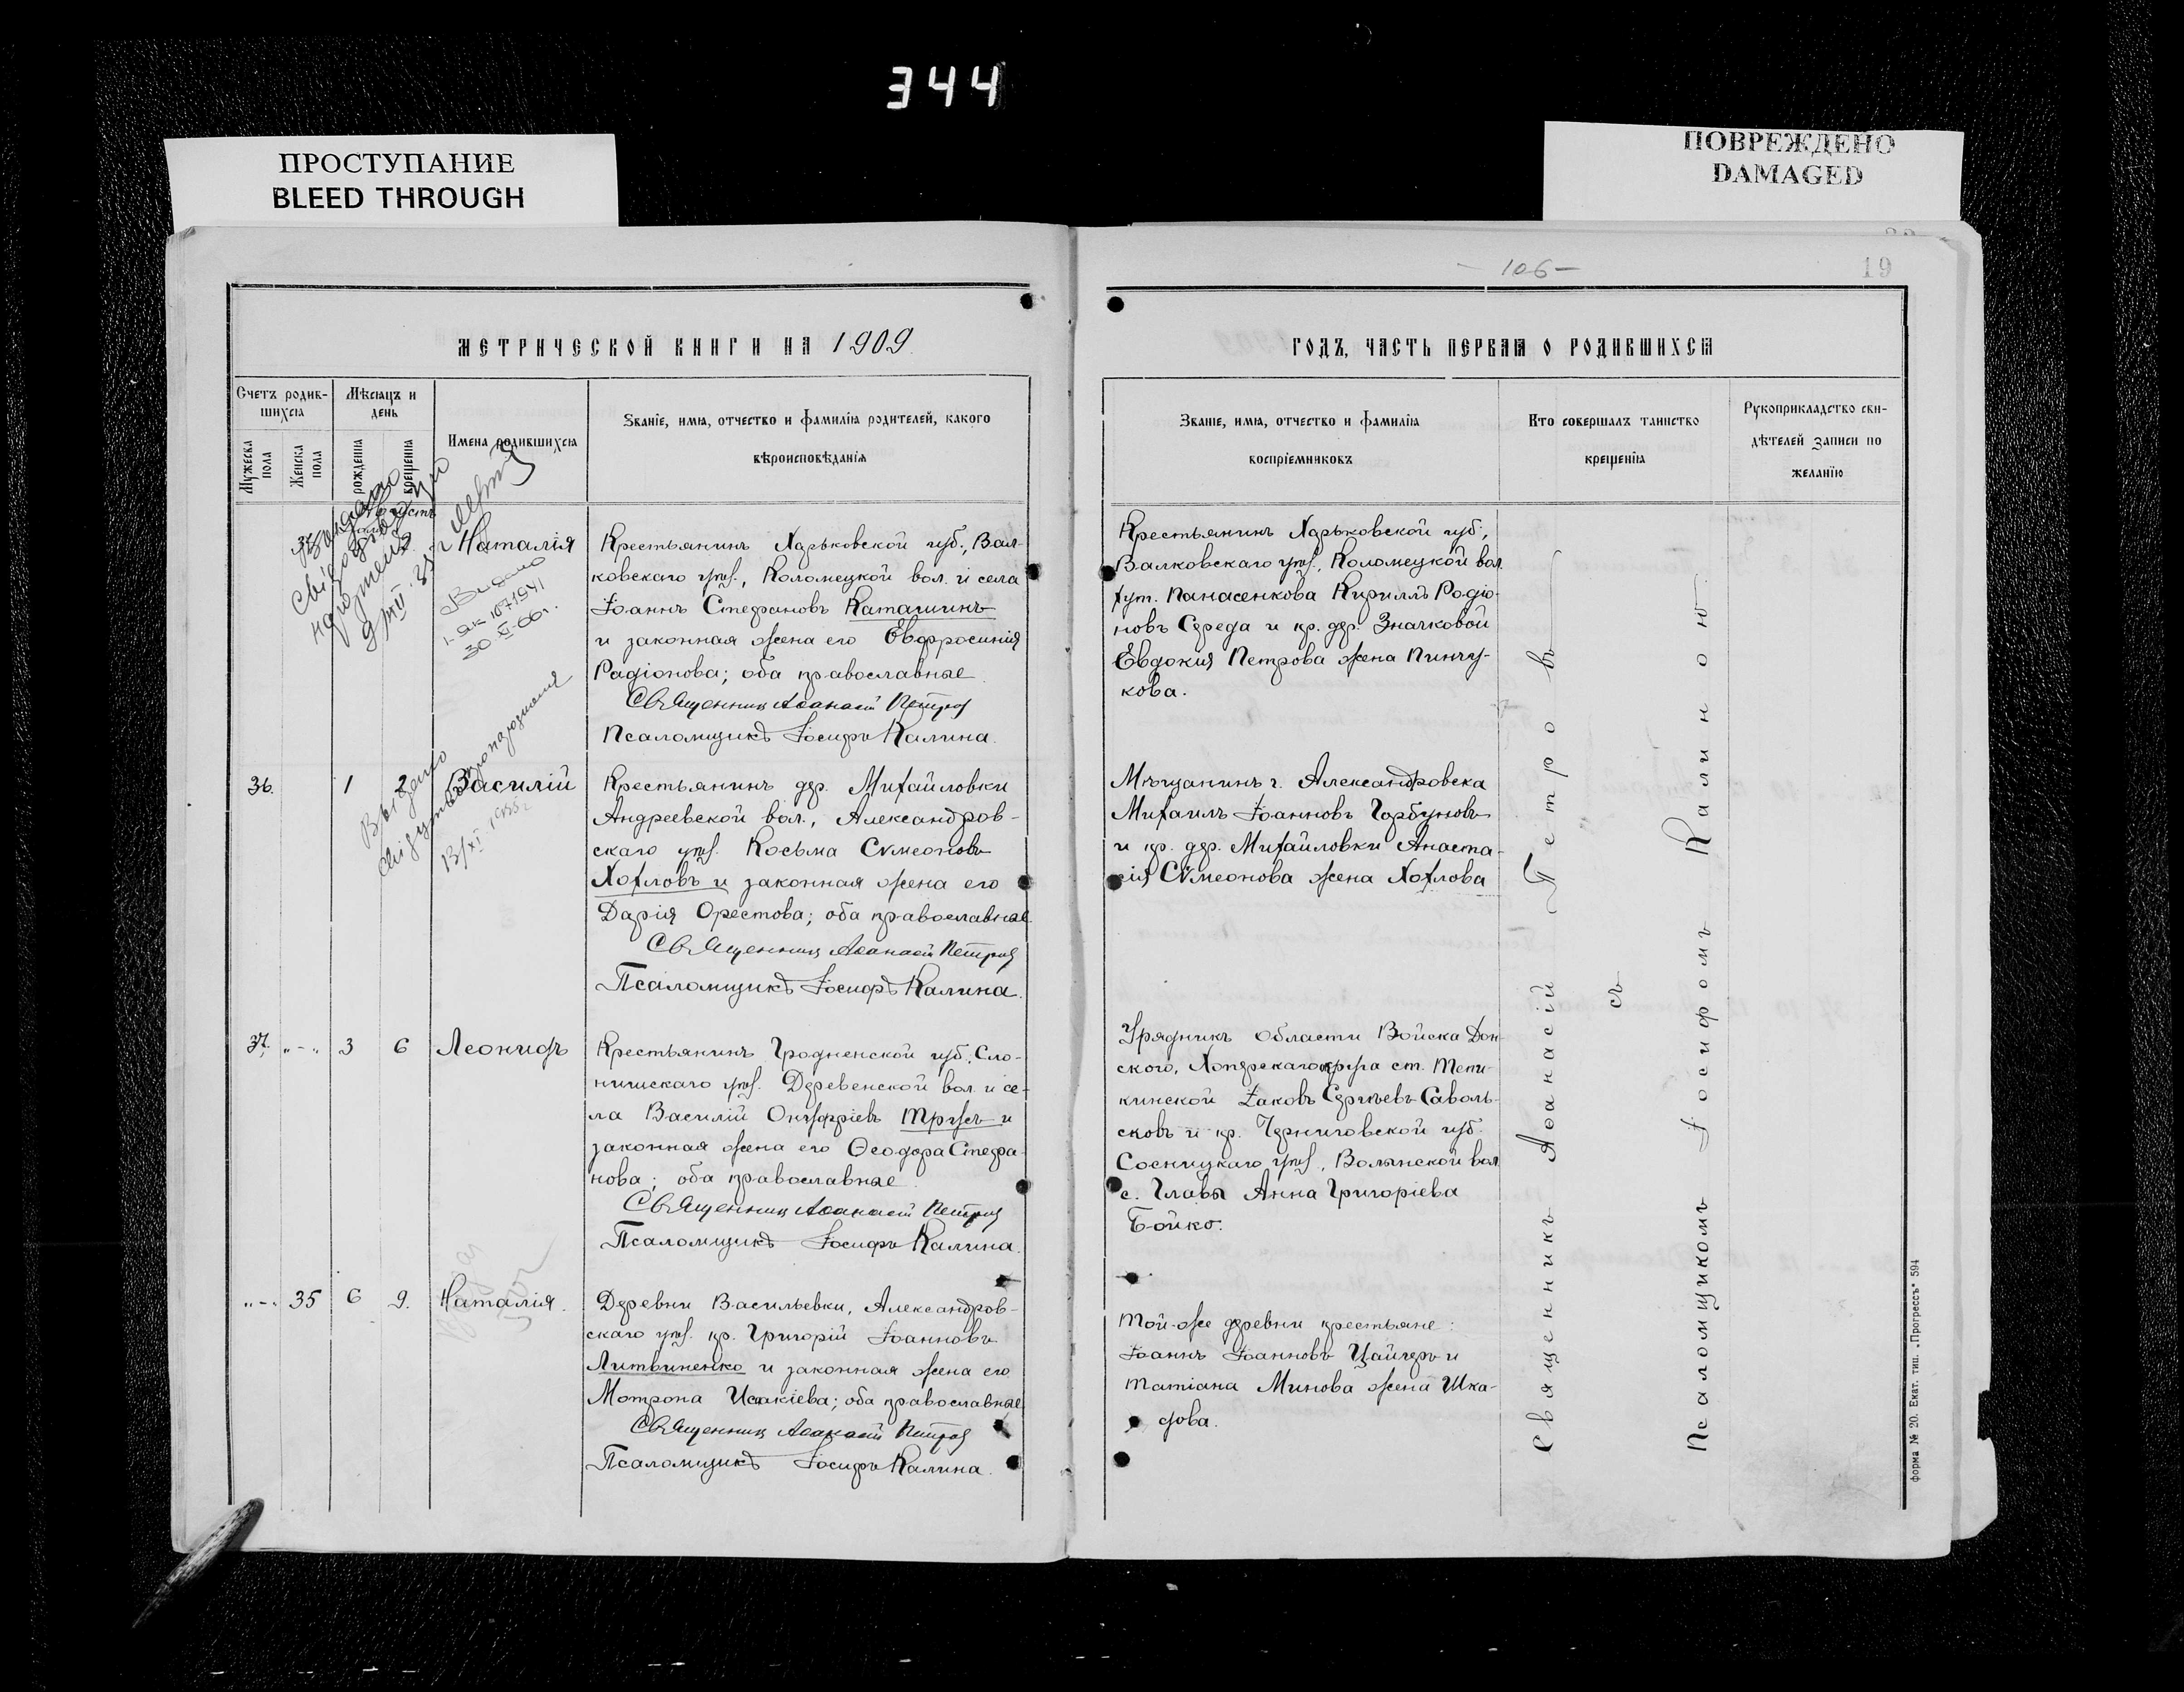 344
ПРОСТУПАНИЕ
BLEED THROUGH
ПОВРЕЖДЕНО
DAMAGED
- 106 -
19
МЕТРИЧЕСКОЙ КНИГИ НА 1909
ГОДЪ, ЧАСТЬ ПЕРВАЯ О РОДИВШИХСЯ
Счетъ родив-
шихся
Мужеска пола
Женска пола
Мѣсяцъ и
день
рожденія
крещенія
Имена родившихся
Званіе, имя, отчество и фамилія родителей, какого
вѣроисповѣданія
Званіе, имя, отчество и фамилія
воспріемниковъ
Кто совершалъ таинство
крещенія
Рукоприкладство сви-
дѣтелей записи по
желанію
Наталія
Видано
I-ЯК 1071941
30-XI-66г.
Крестьянинъ Харьковской губ., Вал-
ковскаго уѣз., Коломецкой вол. и села
Іоаннъ Стефановъ Каташинъ
и законная жена его Евфросинія
Радіонова; оба православные
Священникъ Аѳанасій Петровъ
Псаломщикъ Іосифъ Калина.
Крестьянинъ Харьковской губ.,
Валковскаго уѣз., Коломецкой вол.
хут. Панасенкова Кириллъ Родіо-
новъ Середа и кр. дер. Значковой
Евдокія Петрова жена Пинчу-
кова.
36.
1
2
Василій
Крестьянинъ дер. Михайловки
Андреевской вол., Александров-
скаго уѣз. Косьма Сѵмеоновъ
Хохловъ и законная жена его
Дарія Орестова; оба православные.
Священникъ Аѳанасій Петровъ
Псаломщикъ Іосифъ Калина.
Мѣщанинъ г. Александровска
Михаилъ Іоанновъ Горбуновъ
и кр. дер. Михайловки Анаста-
сія Сѵмеонова жена Хохлова
37.
„-„
3
6
Леонидъ
Крестьянинъ Гродненской губ., Сло-
нимскаго уѣз. Деревенской вол. и се-
ла Василій Онуфріевъ Трусъ и
законная жена его Ѳеодора Стефа-
нова; оба православные.
Священникъ Аѳанасій Петровъ
Псаломщикъ Іосифъ Калина.
Урядникъ области Войска Дон-
ского, Хоперскаго округа ст. Тепи-
кинской Іаковъ Сергѣевъ Саволь-
сковъ и кр. Черниговской губ.
Сосницкаго уѣз., Волынской вол.
с. Главы Анна Григоріева
Бойко.
„-„
35
6
9.
Наталія.
Деревни Васильевки, Александров-
скаго уѣз. кр. Григорій Іоанновъ
Литвиненко и законная жена его
Мотрона Исакіева; оба православные
Священникъ Аѳанасій Петровъ
Псаломщикъ Іосифъ Калина.
Той-же деревни крестьяне:
Іоаннъ Іоанновъ Цайгеръ и
Татіана Минова жена Шка-
рова.
Священникъ Аѳанасій Петровъ
съ
Псаломщикомъ Іосифомъ Калиною
Форма № 20. Екат. тип. „Прогрессъ" 594